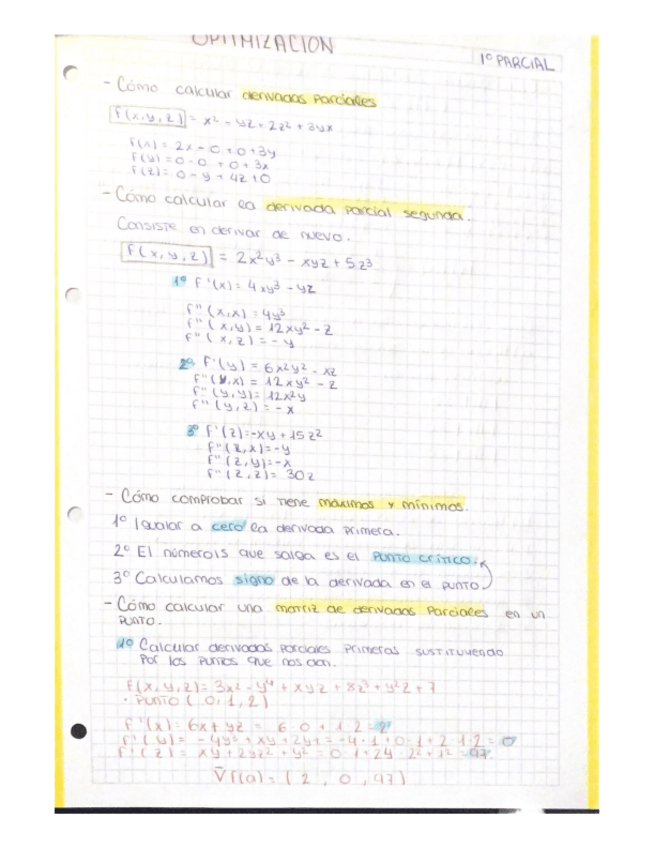 OPTIMIZACIÓN
1º PARCIAL
- Cómo calcular derivadas parciales
f(x,y,z) = x² - yz + 2z² + 3yx
f(x) = 2x - 0 + 0 + 3y
f(y) = 0 - 0 + 0 + 3x
f(z) = 0 - y + 4z + 0
- Cómo calcular la derivada parcial segunda.
Consiste en derivar de nuevo.
f(x, y, z) = 2x²y³ - xyz + 5z³
1º f'(x) = 4xy³ - yz
f''(x,x) = 4y³
f''(x,y) = 12xy² - z
f''(x,z) = -y
2º f'(y) = 6x²y² - xz
f''(y,x) = 12xy² - z
f''(y,y) = 12x²y
f''(y,z) = -x
3º f'(z) = -xy + 15z²
f''(z,x) = -y
f''(z,y) = -x
f''(z,z) = 30z
- Cómo comprobar si tiene máximos y mínimos.
1º Igualar a cero la derivada primera.
2º El número/s que salga es el PUNTO CRÍTICO.
3º Calculamos signo de la derivada en el punto.
- Cómo calcular una matriz de derivadas parciales en un
PUNTO.
1º Calcular derivadas parciales primeras sustituyendo
por los puntos que nos dan.
f(x,y,z) = 3x² - y⁴ + xyz + 8z³ + y²z + 7
· PUNTO (0,1,2)
f'(x) = 6x + yz = 6·0 + 1·2 = 2
f'(y) = -4y³ + xy + 2yz = -4·1 + 0·1 + 2·1·2 = 0
f'(z) = xy + 24z² + y² = 0·1 + 24·2² + 1² = 97
∇f(a) = (2, 0, 97)